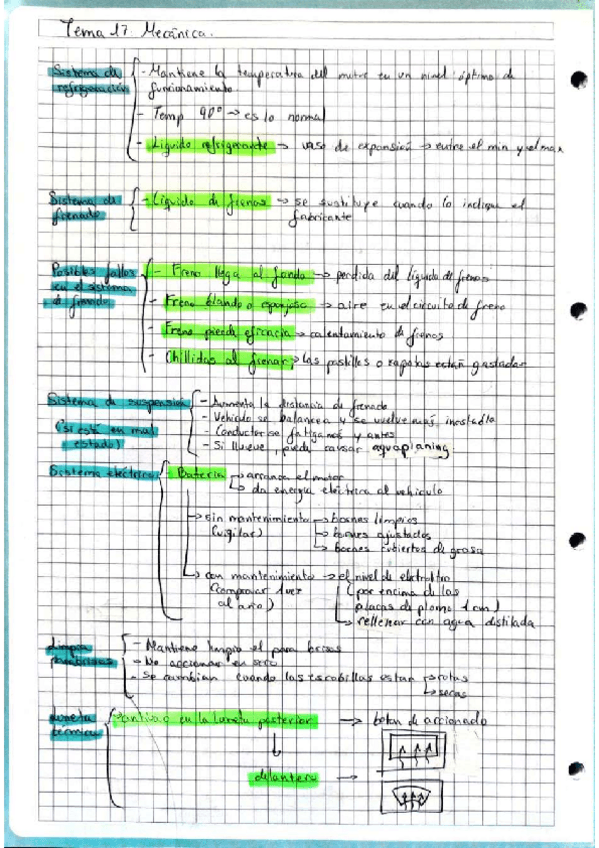 Tema 17 Mecánica.
Sistema de refrigeración
- Mantiene la temperatura del motor en un nivel óptimo de
funcionamiento.
- Temp 90° → es lo normal
- Liquido refrigerante → vaso de expansión → entre el min y el max
Sistema de frenado
- Liquido de frenos → se sustituye cuando lo indique el
fabricante
Posibles fallos
en el sistema
de frenado
- Freno llega al fondo → perdida del liquido de frenos
- Freno blando o esponjoso → aire en el circuito de freno
- Freno pierde eficacia → calentamiento de frenos
- Chillidos al frenar, las pastillas o zapatas estan gastadas
Sistema de suspensión
(si está en mal
estado)
- Aumenta la distancia de frenado
- Vehiculo se balancea y se vuelve más inestable
- Conductor se fatiga más y antes
- Si llueve, puede causar aquaplaning
Sistema eléctrico
- Bateria → arranca el motor
→ da energia eléctrica al vehiculo
→ sin mantenimiento → bornes limpios
(vigilar) → bornes ajustados
→ bornes cubiertos de grasa
→ con mantenimiento → el nivel de electrolito
(comprobar 1 vez (por encima de las
al año) placas de plomo 1 cm)
→ rellenar con agua distilada
Limpia
parabrisas
- Mantiene limpio el para brisas
- No accionar en seco
- Se cambian cuando las escobillas estan → rotas
→ secas
Luneta
térmica
en la luneta posterior → boton de accionado
↓
delantera →